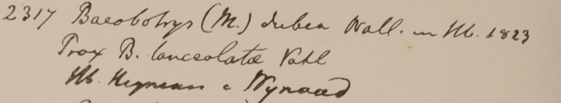 2317 Baeobotrys (M.) dubia Wall. in Hb. 1823
Prox B. lanceolatæ Vahl
Hb. Heynean e Wynaad